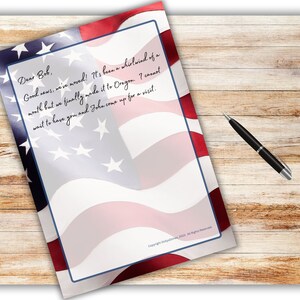 Dear Bob,
Good news, we've moved! It's been a whirlwind of a
month but we finally made it to Oregon. I cannot
wait to have you and John come up for a visit.